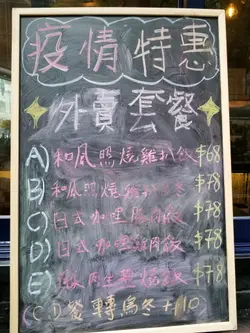 疫情特惠
外賣套餐
A) 和風照燒雞扒飯 $68
B) 和風照燒雞扒烏冬 $78
C) 日式加哩 飯 $78
D) 日式加哩 飯 $78
E) 肉生 飯 $78
(C D餐轉烏冬+10